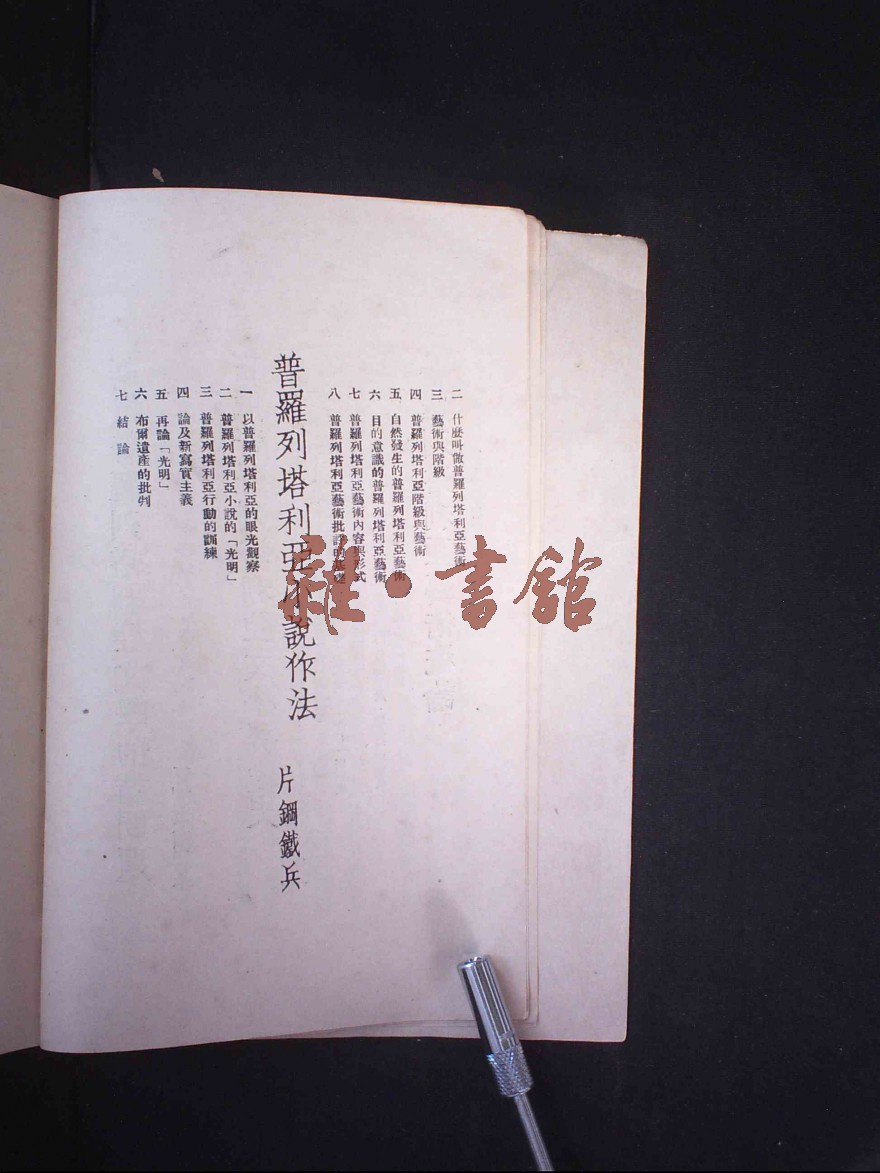 二 什麼叫做普羅列塔利亞藝術
三 藝術與階級
四 普羅列塔利亞階級與藝術
五 自然發生的普羅列塔利亞藝術
六 目的意識的普羅列塔利亞藝術
七 普羅列塔利亞藝術內容與形式
八 普羅列塔利亞藝術批評的基礎
普羅列塔利亞小說作法 片鋼鐵兵
一 以普羅列塔利亞的眼光觀察
二 普羅列塔利亞小說的「光明」
三 普羅列塔利亞行動的訓練
四 論及新寫實主義
五 再論「光明」
六 布爾遺產的批判
七 結論
雜·書館